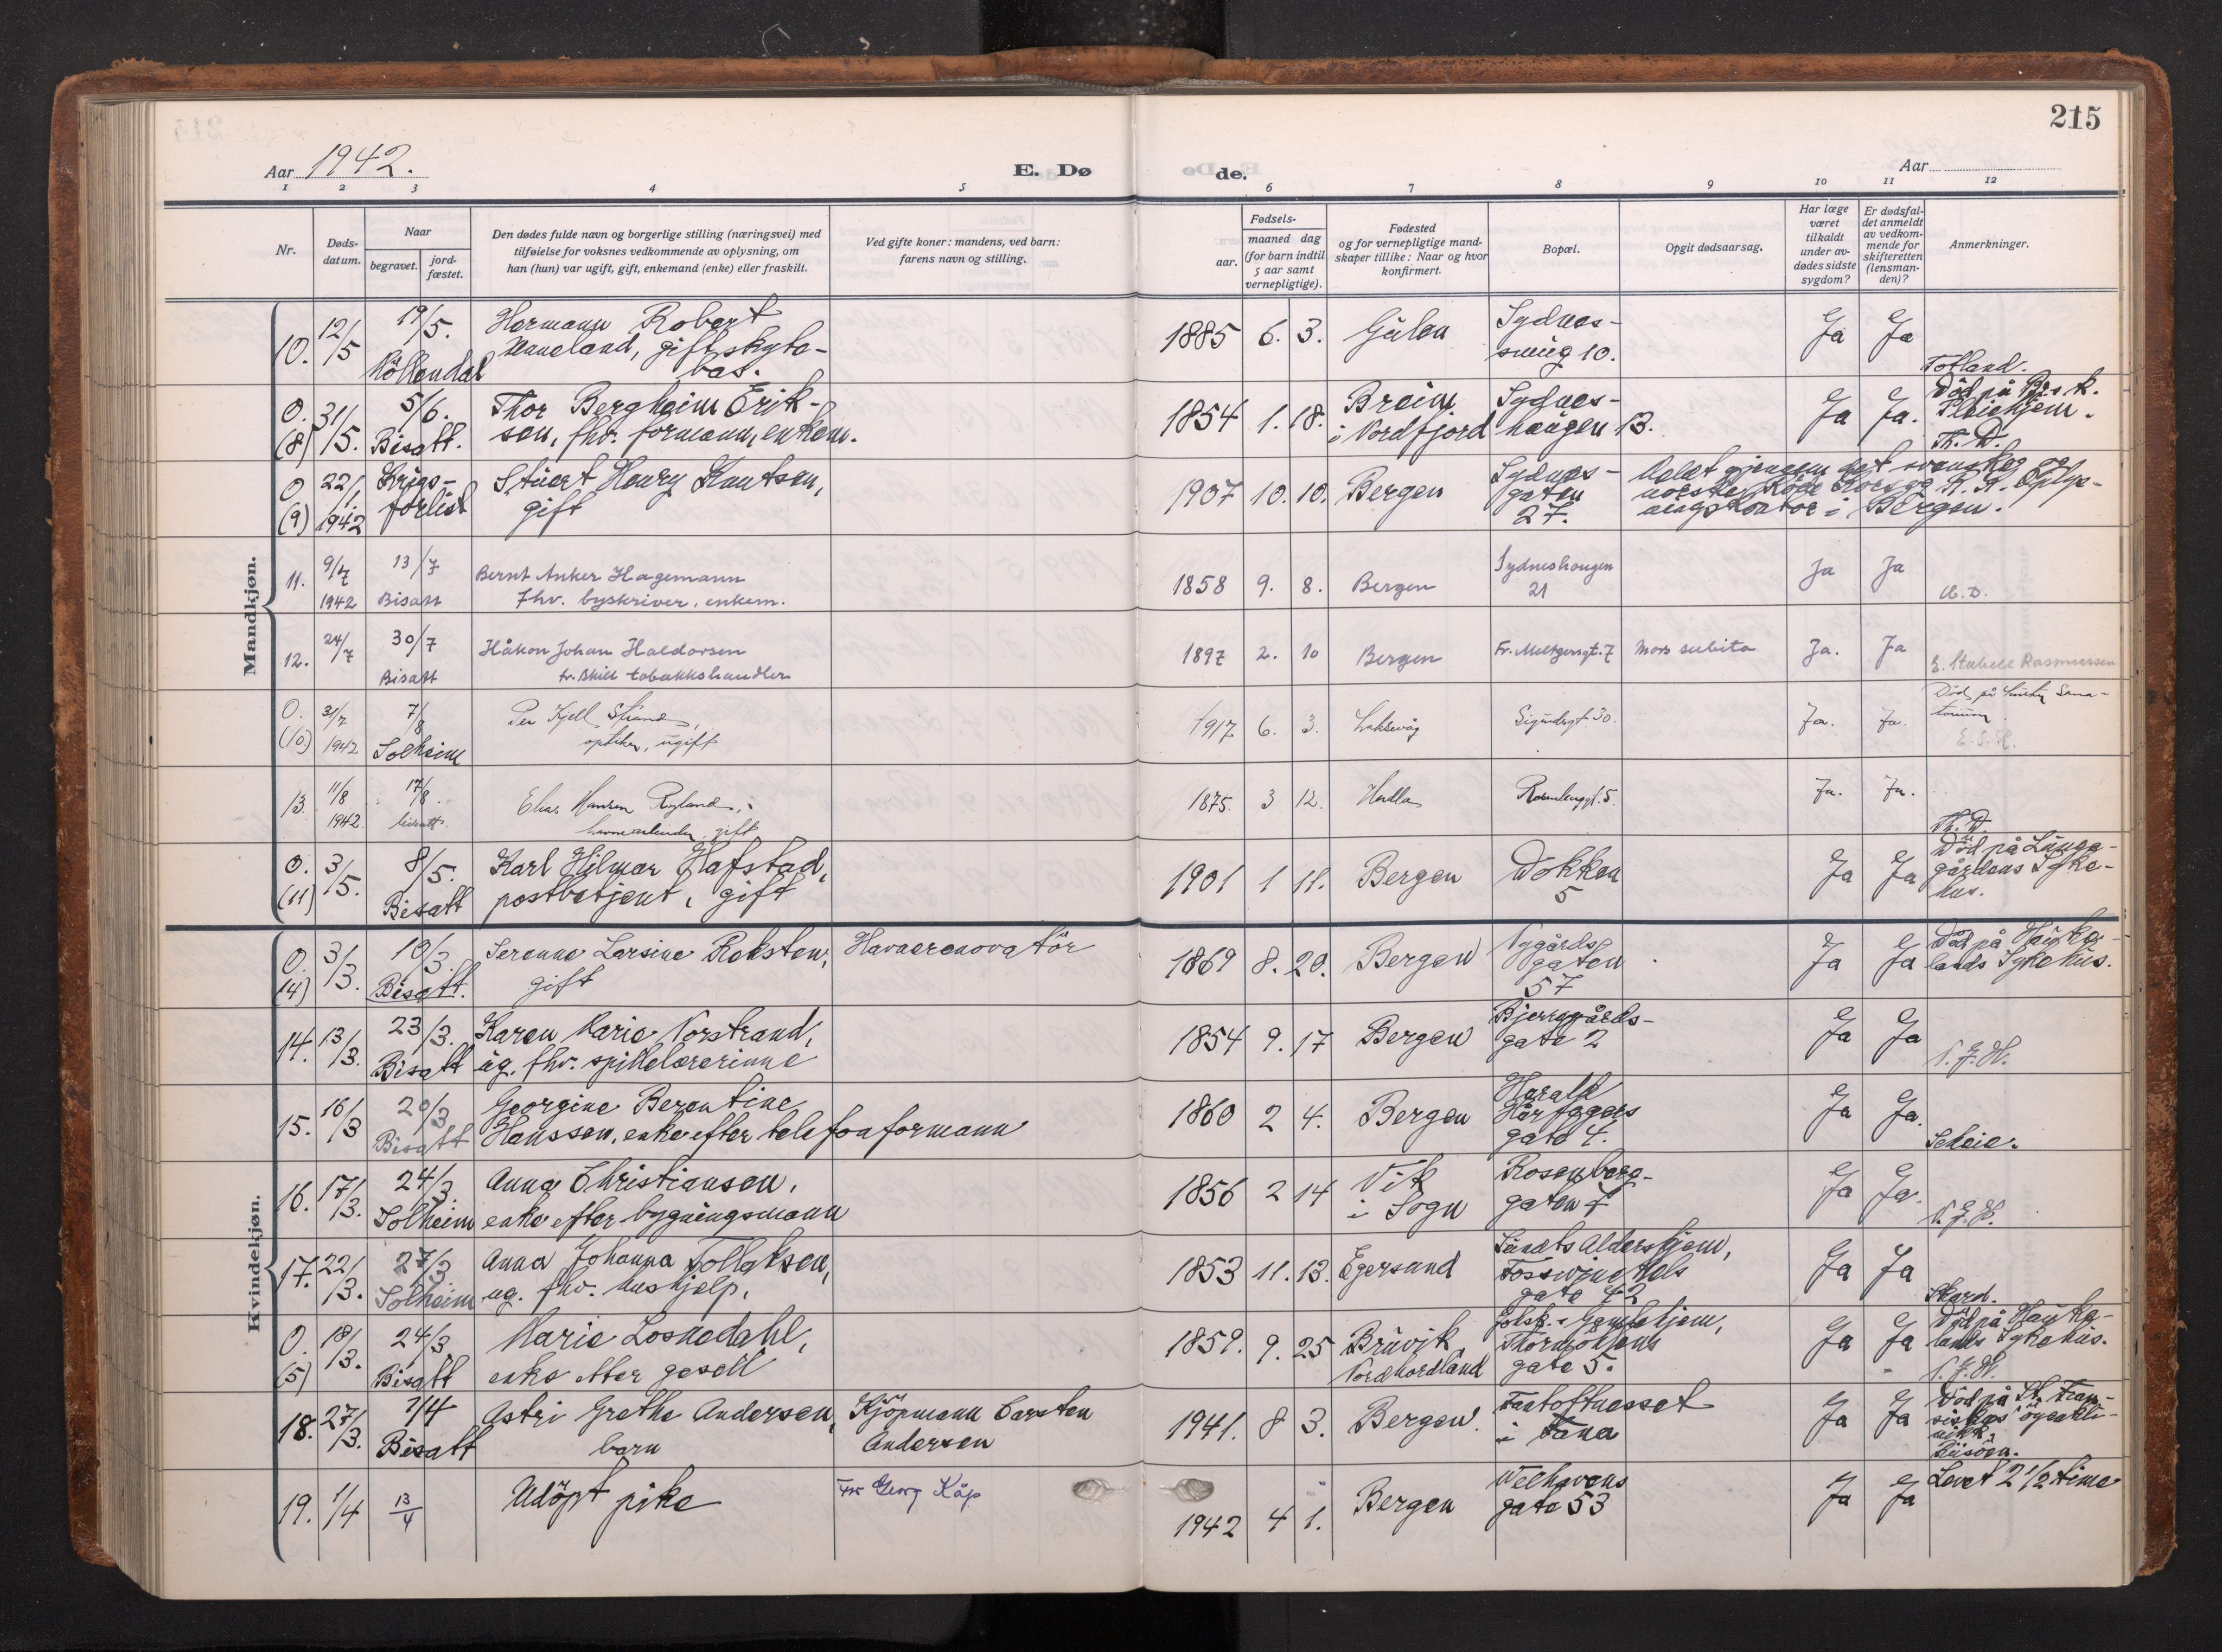 215
Aar 1942.
E. Dø
de.
Aar
1 2 3 4 5 6 7 8 9 10 11 12
Nr.
Døds-
datum.
Naar
begravet.
jord-
fæstet.
Den dødes fulde navn og borgerlige stilling (næringsvei) med
tilføielse for voksnes vedkommende av oplysning, om
han (hun) var ugift, gift, enkemand (enke) eller fraskilt.
Ved gifte koner: mandens, ved barn:
farens navn og stilling.
Fødsels-
aar.
maaned dag
(for barn indtil
5 aar samt
vernepligtige).
Fødested
og for vernepligtige mand-
skaper tillike: Naar og hvor
konfirmert.
Bopæl.
Opgit dødsaarsag.
Har læge
været
tilkaldt
under av-
dødes sidste
sygdom?
Er dødsfal-
det anmeldt
av vedkom-
mende for
skifteretten
(lensman-
den)?
Anmerkninger.
Mandkjøn.
10. 12/5 19/5. Hermann Robert 1885 6. 3. Gulen Sydnes- Ja Ja
Møllendal Haueland, gift skyte- smug 10.
bas. Tofland.
0. 31/5. 5/6. Thor Bergheim Erik- 1854 1. 18. Breim Sydnes- Ja Ja. Død på
(8) Bisatt. sen, fhv. formann, enkem. i Nordfjord haugen 13. Pleiehjem.
Th. D.
0 22/1 Krigs- Stuert Henry Knutsen, 1907 10. 10. Bergen Sydnes- Meldt gjennem det svenske og
(9) 1942 forlist gift gaten norske Røde Kors og R. K. Oplys-
27. ningskontor i Bergen.
11. 9/7 13/7 Bernt Anker Hagemann 1858 9. 8. Bergen Sydneshaugen Ja Ja
1942 Bisatt Fhv. byskriver, enkem. 21
12. 24/7 30/7 Håkon Johan Haldorsen 1897 2. 10 Bergen Fr. Meltzersgt. 7 Mors subita Ja. Ja
Bisatt fr. skilt tobakkshandler E. Stabell Rasmussen
0. 31/7 7/8 Per Kjell Strand, 1917 6. 3. Laksevåg Sigurdsgt. 30. Ja. Ja. Død på Luster Sana-
(10) 1942 Solheim optiker, ugift torium.
E. S. R.
13. 11/8 17/8. Elias Hansen Rygland, 1875. 3 12. Herdla Rosenberggt. 5. Ja. Ja.
1942 bisatt. havnearbeider, gift
Th. D.
0. 3/5. 8/5. Karl Hilmar Hafstad, 1901 1 11. Bergen Dokken Ja Ja Død på Lunge-
(11) Bisatt postbetjent, gift 5 gårdens Syke-
hus.
Kvindekjøn.
0. 3/3. 10/3. Serenne Larsine Reksten, Havnerenovatør 1869 8. 20. Bergen Nygårds- Ja Ja Død på Hauke-
(4) Bisatt. gift gaten lands Sykehus.
57
14. 13/3. 23/3. Karen Marie Norstrand, 1854 9. 17 Bergen Bjerregårds- Ja Ja
Bisatt ug. fhv. spillelærerinne gate 2
N. J. H.
15. 16/3 20/3 Georgine Berentine 1860 2 4. Bergen Harald Ja Ja.
Bisatt Hanssen, enke efter telefonformann Hårfagers
gate 4. Scheie.
16. 17/3. 24/3. Anna Christiansen, 1856 2 14 Vik Rosenberg- Ja Ja.
Solheim enke efter bygningsmann i Sogn gaten 7 N. J. H.
17. 22/3. 27/3 Anna Johanna Tollaksen, 1853 11. 13. Egersund Sundts Aldershjem, Ja Ja
Solheim ug. fhv. hushjelp. Fosswinckels
gate 42 Skard.
0. 18/3. 24/3 Marie Losnedahl, 1859. 9. 25 Bruvik Gamlehjem, Ja Ja Død på Hauke-
(5) Bisatt enke etter gesell Nordhordland Thormøhlens lands Sykehus.
gate 5. N. J. H.
18. 27/3. 7/4 Astri Grethe Andersen, Kjøpmann Carsten 1941. 8 3. Bergen. Fantoftnesset Ja Ja Død på St. Fran-
Bisatt barn Andersen i Fana siskus øyekli-
nikk.
19. 1/4 13/4 Udöpt pike Georg Kåp 1942 4 1. Bergen Welhavens Ja Ja Levet 2 1/2 time
gate 53